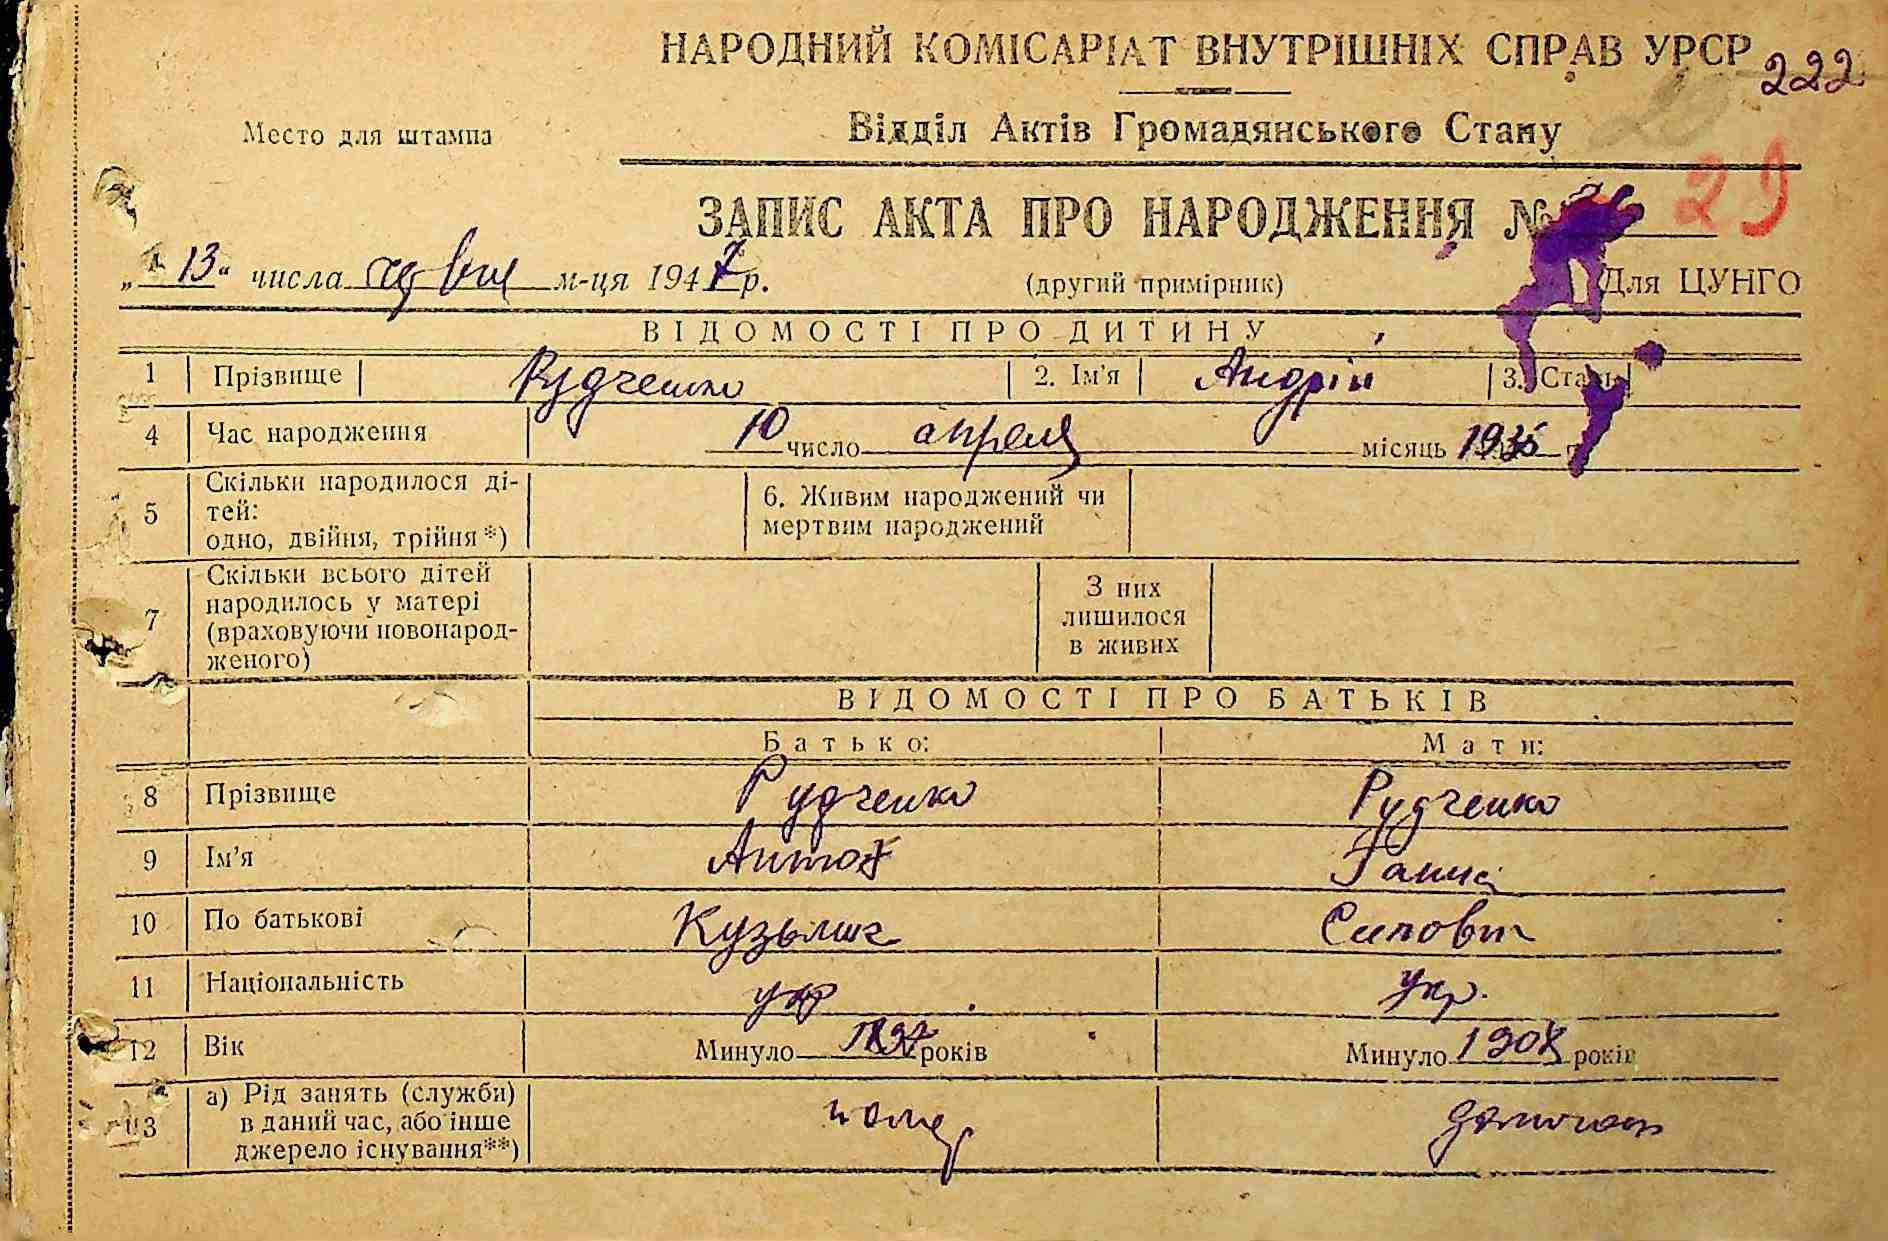 НАРОДНИЙ КОМІСАРІАТ ВНУТРІШНІХ СПРАВ УРСР
222
Место для штампа
Відділ Актів Громадянського Стану
ЗАПИС АКТА ПРО НАРОДЖЕННЯ №
29
„13“ числа червня м-ця 1947 р.
(другий примірник)
Для ЦУНГО
ВІДОМОСТІ ПРО ДИТИНУ
1 Прізвище Рудченко 2. Ім'я Андрій 3. Стать
4 Час народження 10 число апреля місяць 1935
5 Скільки народилося ді-
тей:
одно, двійня, трійня*)
6. Живим народжений чи
мертвим народжений
7 Скільки всього дітей
народилось у матері
(враховуючи новонарод-
женого)
З них
лишилося
в живих
ВІДОМОСТІ ПРО БАТЬКІВ
Батько: Мати:
8 Прізвище Рудченко Рудченко
9 Ім'я Антон Ганна
10 По батькові Кузьмич Силовн
11 Національність укр укр.
12 Вік Минуло 1897 років Минуло 1908 років
13 а) Рід занять (служби)
в даний час, або інше
джерело існування**)
помер домогосп